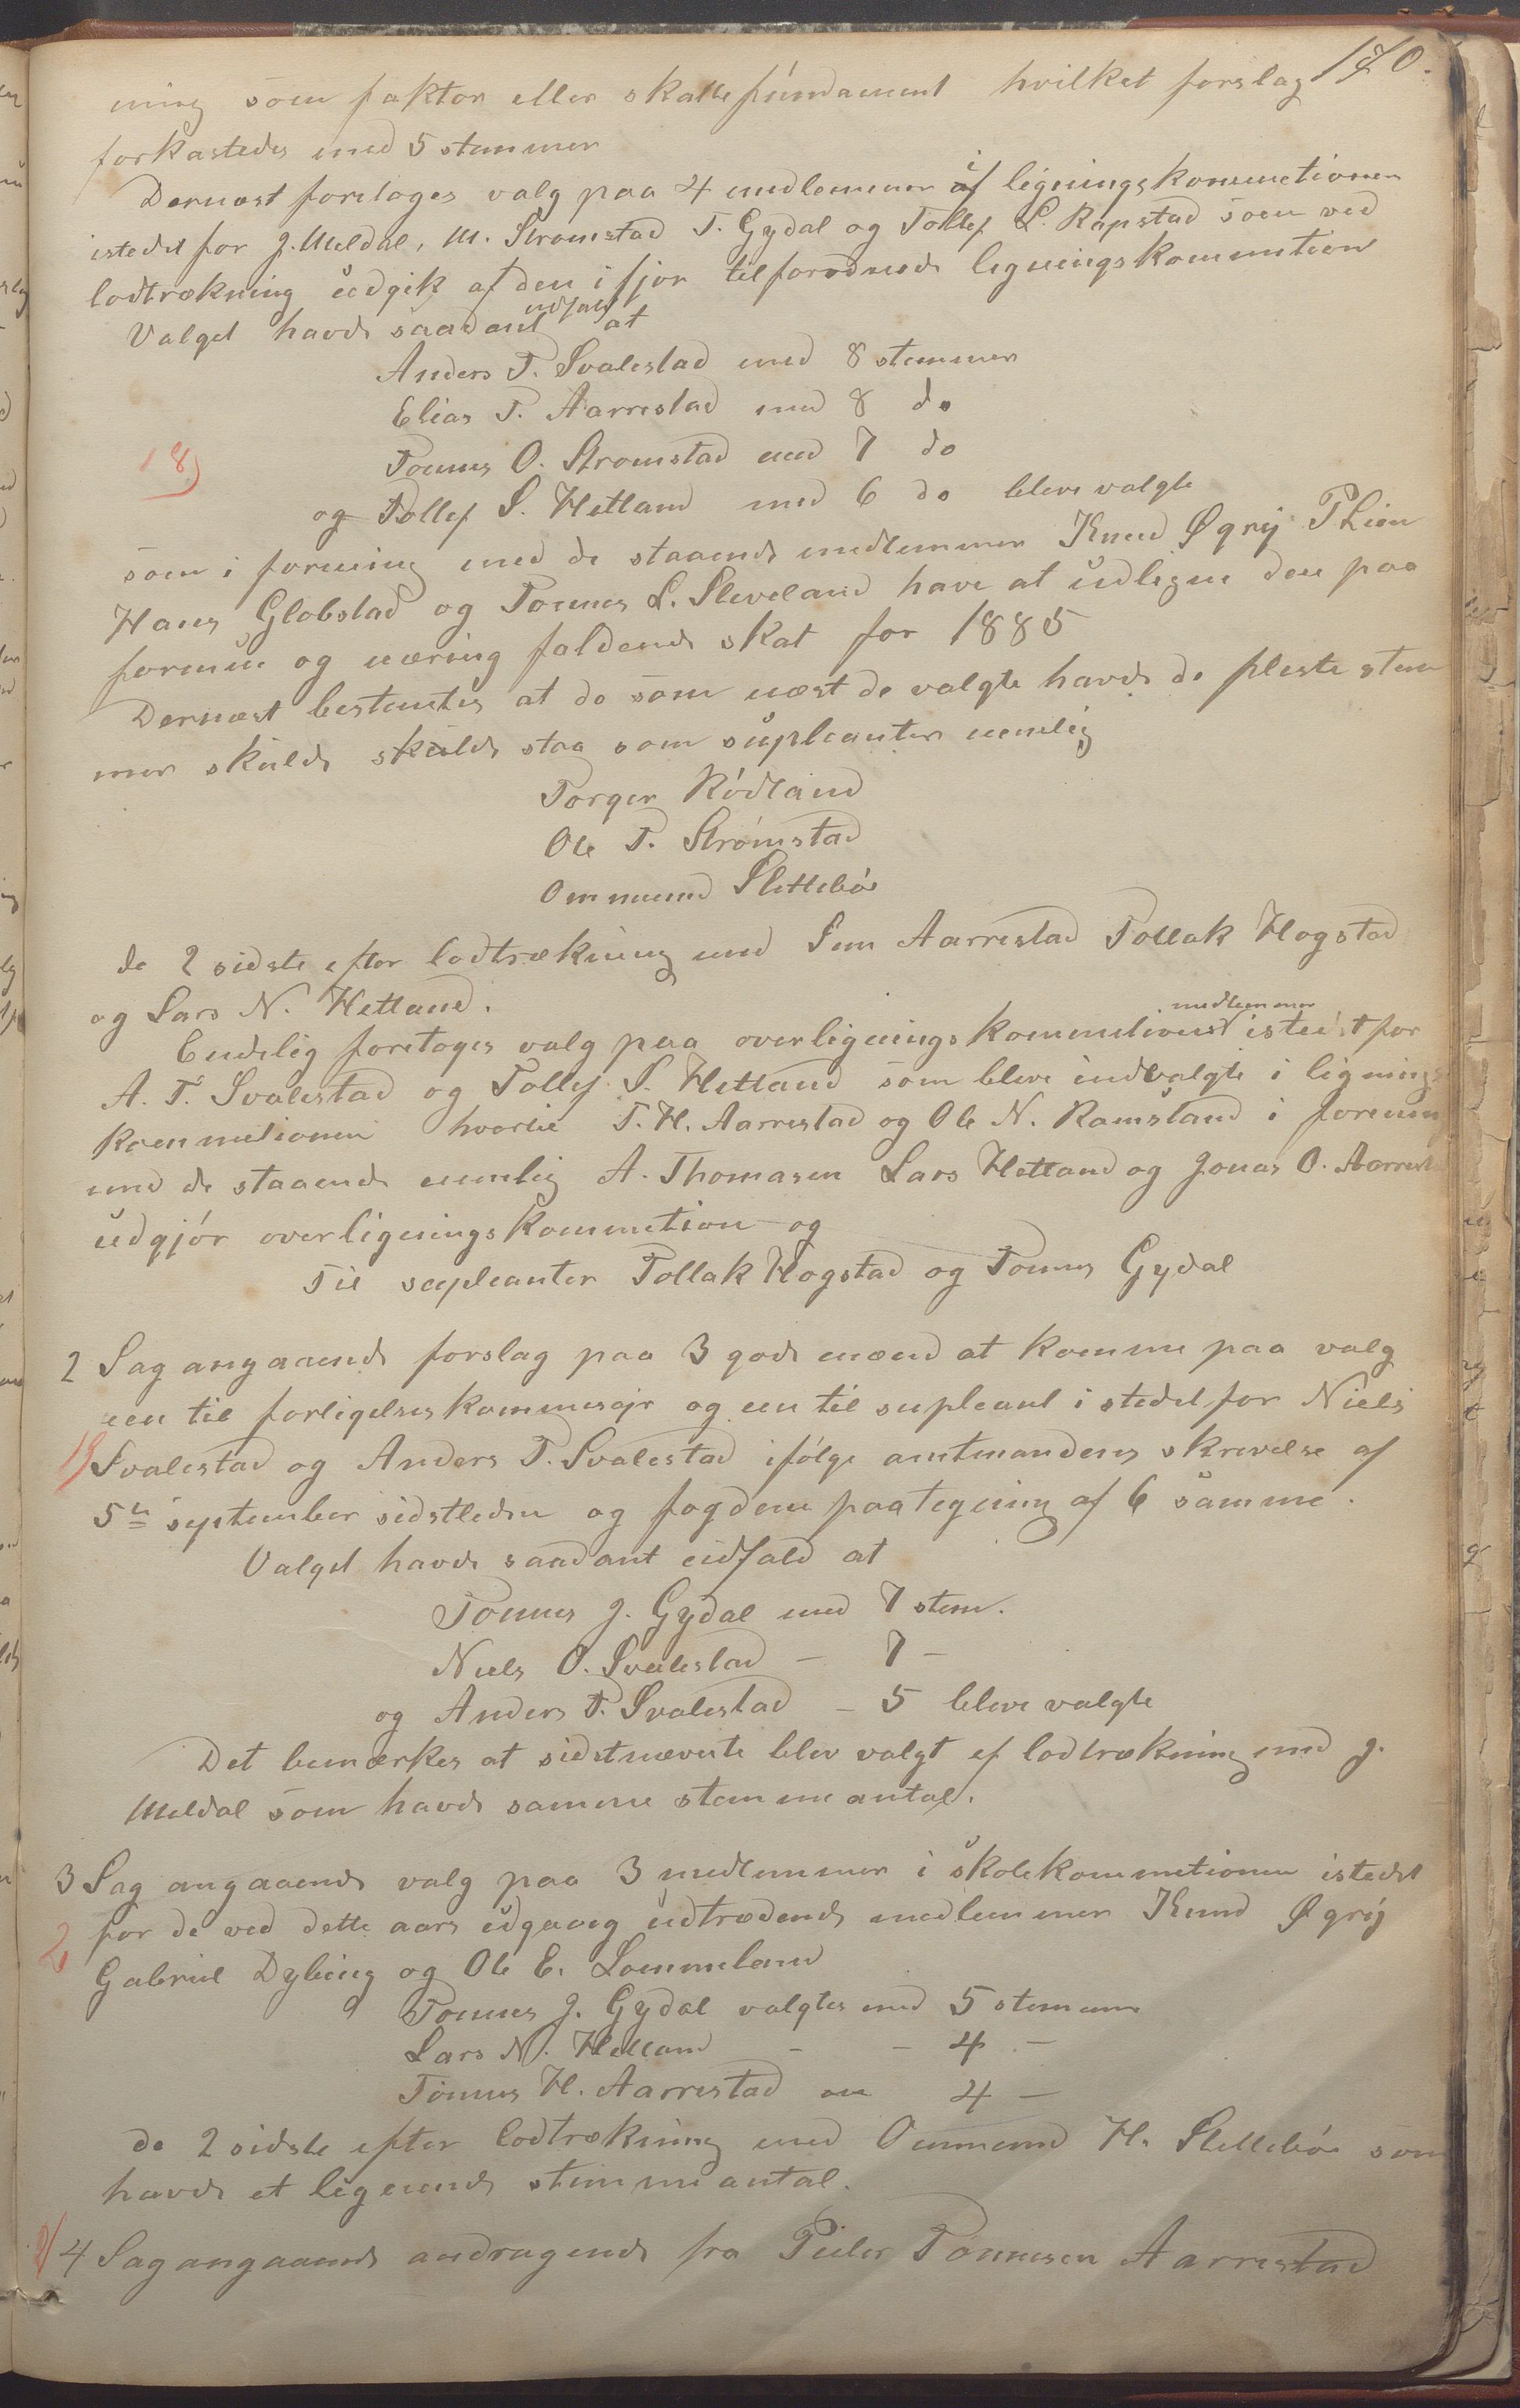 170.
ning som faktor eller skattefundament hvilket forslag
forkastedes med 5 stemmer
Dernæst foretoges valg paa 4 medlemmer i ligningskommetionen
istedet for J. Meldal, M. Stromstad T. Gydal og Tollef L. Rapstad som ved
lodtrækning udgik af den i fjor tilforodnede ligningskommetion
Valget havde saadant udfald at
Anders T. Svalestad med 8 stemmer
Elias T. Aarrestad med 8 do
18) Tønnes O. Stromstad med 7 do
og Tollef S. Hetland med 6 do bleve valgte
som i forening med de staaende medlemmer Knud Øgrij T Lien
Hans Globstad og Tønnes L. Sleveland have at udligne den paa
formue og næring faldende skat for 1885
Dernæst bestemtes at de som næst de valgte havde de fleste stem
mer skulde skulde staa som supleanter nemlig
Torger Rödland
Ole T. Strömstad
Ommund Slettebö
de 2 sidste efter lodtrækning med Sem Aarrestad Tollak Hogstad
og Lars N. Hetland.
Endelig foretoges valg paa overligningskommetions medlemmer istedet for
A. T. Svalestad og Tollef S. Hetland som bleve indvalgte i lignings
kommetionen hvortil T. H. Aarrestad og Ole N. Ramsland i forening
med de staaende nemlig A. Thomasen Lars Hetland og Jonas O. Aarrest
udgjör overligningskommetion og
Til supleanter Tollak Hogstad og Tønnes Gydal
2 Sag angaaende forslag paa 3 gode mænd at komme paa valg
een til forligelseskommesajr og een til supleant i stedet for Niels
19) Svalestad og Anders T. Svalestad ifölge amtmandens skrivelse af
5te september sidstleden og fogdens paategning af 6 samme.
Valget havde saadant udfald at
Tønnes J. Gydal med 7 stem.
Niels O. Svalestad – 7 –
og Anders T. Svalestad – 5 bleve valgte
Det bemærkes at sidstnævnte blev valgt ef lodtrækning med J.
Meldal som havde samme stemmeantal.
3 Sag angaaende valg paa 3 medlemmer i skolekommetionen istedet
for de ved dette aars udgang udtrædende medlemmer Knud Øgrij
Gabriel Dybing og Ole E. Lommeland
Tønnes J. Gydal valgtes med 5 stemmer
Lars N. Hetland – – 4 –
Tönnes H. Aarrestad 4 –
de 2 sidste efter lodtrækning med Ommund H. Slettebö som
havde et ligeende stemmeantal.
4 Sag angaaende andragende fra Peder Tönnesen Aarrestad